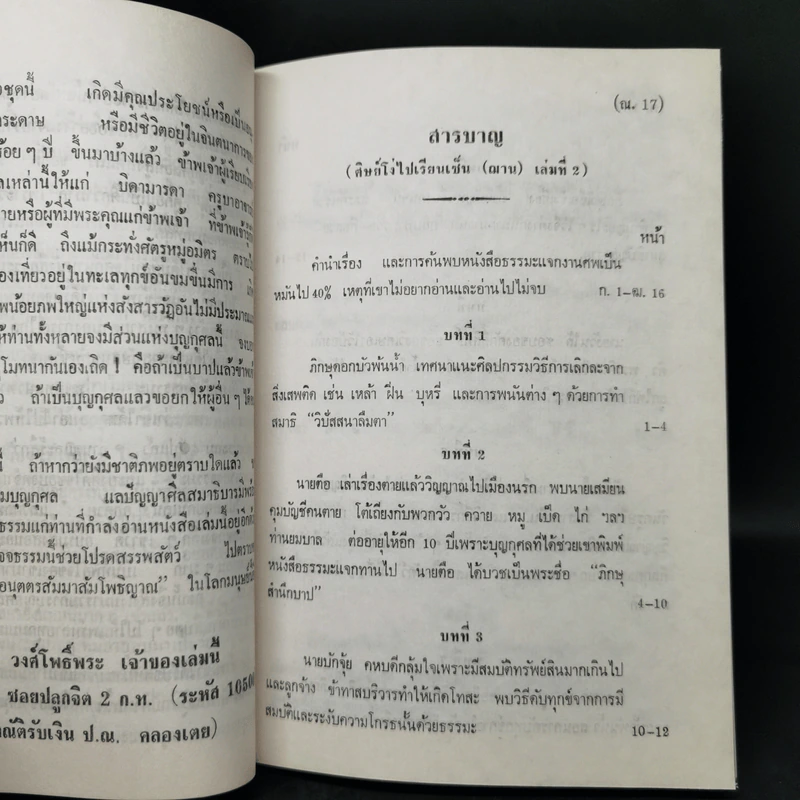 ชุดนี้ เกิดมีคุณประโยชน์หรือเป็น
กระดาษ หรือมีชีวิตอยู่ในจินตนาการ
ร้อยๆ ปี ขึ้นมาบ้างแล้ว ข้าพเจ้าผู้เรียบเรียง
เหล่านี้ให้แก่ บิดามารดา ครูบาอาจารย์
หรือผู้ที่มีพระคุณแก่ข้าพเจ้า ที่ข้าพเจ้า
เห็นก็ดี ถึงแม้กระทั่งศัตรูหมู่อมิตร
ท่องเที่ยวอยู่ในทะเลทุกข์อันขมขื่นมีการ
ภพน้อยภพใหญ่แห่งสังสารวัฏอันไม่มีประมาณ
ให้ท่านทั้งหลายจงมีส่วนแห่งบุญกุศลนี้
โมทนากันเองเถิด ! คือถ้าเป็นบาปแล้วข้าพเจ้า
ถ้าเป็นบุญกุศลแลวขอยกให้ผู้อื่นๆ
ถ้าหากว่ายังมีชาติภพอยู่ตราบใดแล้ว
บุญกุศล แลปัญญาศีลสมาธิบารมี
ธรรมแก่ท่านที่กำลังอ่านหนังสือเล่มนี้อยู่อีก
ธรรมนี้ช่วยโปรดสรรพสัตว์
อนุตตรสัมมาสัมโพธิญาณ" ในโลกมนุษย์
วงศ์โพธิ์พระ เจ้าของเล่มนี้
ซอยปลูกจิต 2 ก.ท. (รหัส 10500
ณัติรับเงิน ป.ณ. คลองเตย)
(ณ. 17)
สารบาญ
(ศิษย์โง่ไปเรียนเซ็น (ฌาน) เล่มที่ 2)
หน้า
คำนำเรื่อง และการค้นพบหนังสือธรรมะแจกงานศพเป็น
หมันไป 40% เหตุที่เขาไม่อยากอ่านและอ่านไปไม่จบ ก. 1-ฒ. 16
บทที่ 1
ภิกษุดอกบัวพ้นน้ำ เทศนาแนะศิลปกรรมวิธีการเลิกละจาก
สิ่งเสพติด เช่น เหล้า ฝิ่น บุหรี่ และการพนันต่าง ๆ ด้วยการทำ
สมาธิ "วิปัสสนาลืมตา" 1-4
บทที่ 2
นายตือ เล่าเรื่องตายแล้ววิญญาณไปเมืองนรก พบนายเสมียน
คุมบัญชีคนตาย โต้เถียงกับพวกวัว ควาย หมู เป็ด ไก่ ฯลฯ
ท่านยมบาล ต่ออายุให้อีก 10 ปีเพราะบุญกุศลที่ได้ช่วยเขาพิมพ์
หนังสือธรรมะแจกทานไป นายตือ ได้บวชเป็นพระชื่อ "ภิกษุ
สำนึกบาป" 4-10
บทที่ 3
นายบักจุ้ย คหบดีกลุ้มใจเพราะมีสมบัติทรัพย์สินมากเกินไป
และลูกจ้าง ข้าทาสบริวารทำให้เกิดโทสะ พบวิธีดับทุกข์จากการมี
สมบัติและระงับความโกรธนั้นด้วยธรรมะ 10-12